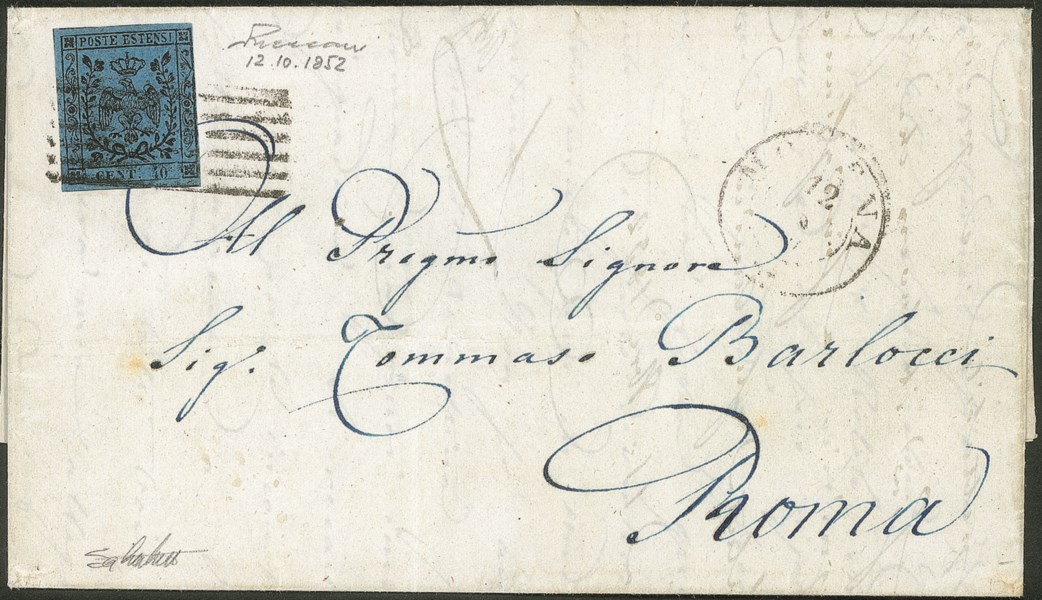 POSTE ESTENSI
CENT. 40
12.10.1852
MODENA
12
Al Pregmo Signore
Sig.e Tommaso Barlocci
Roma